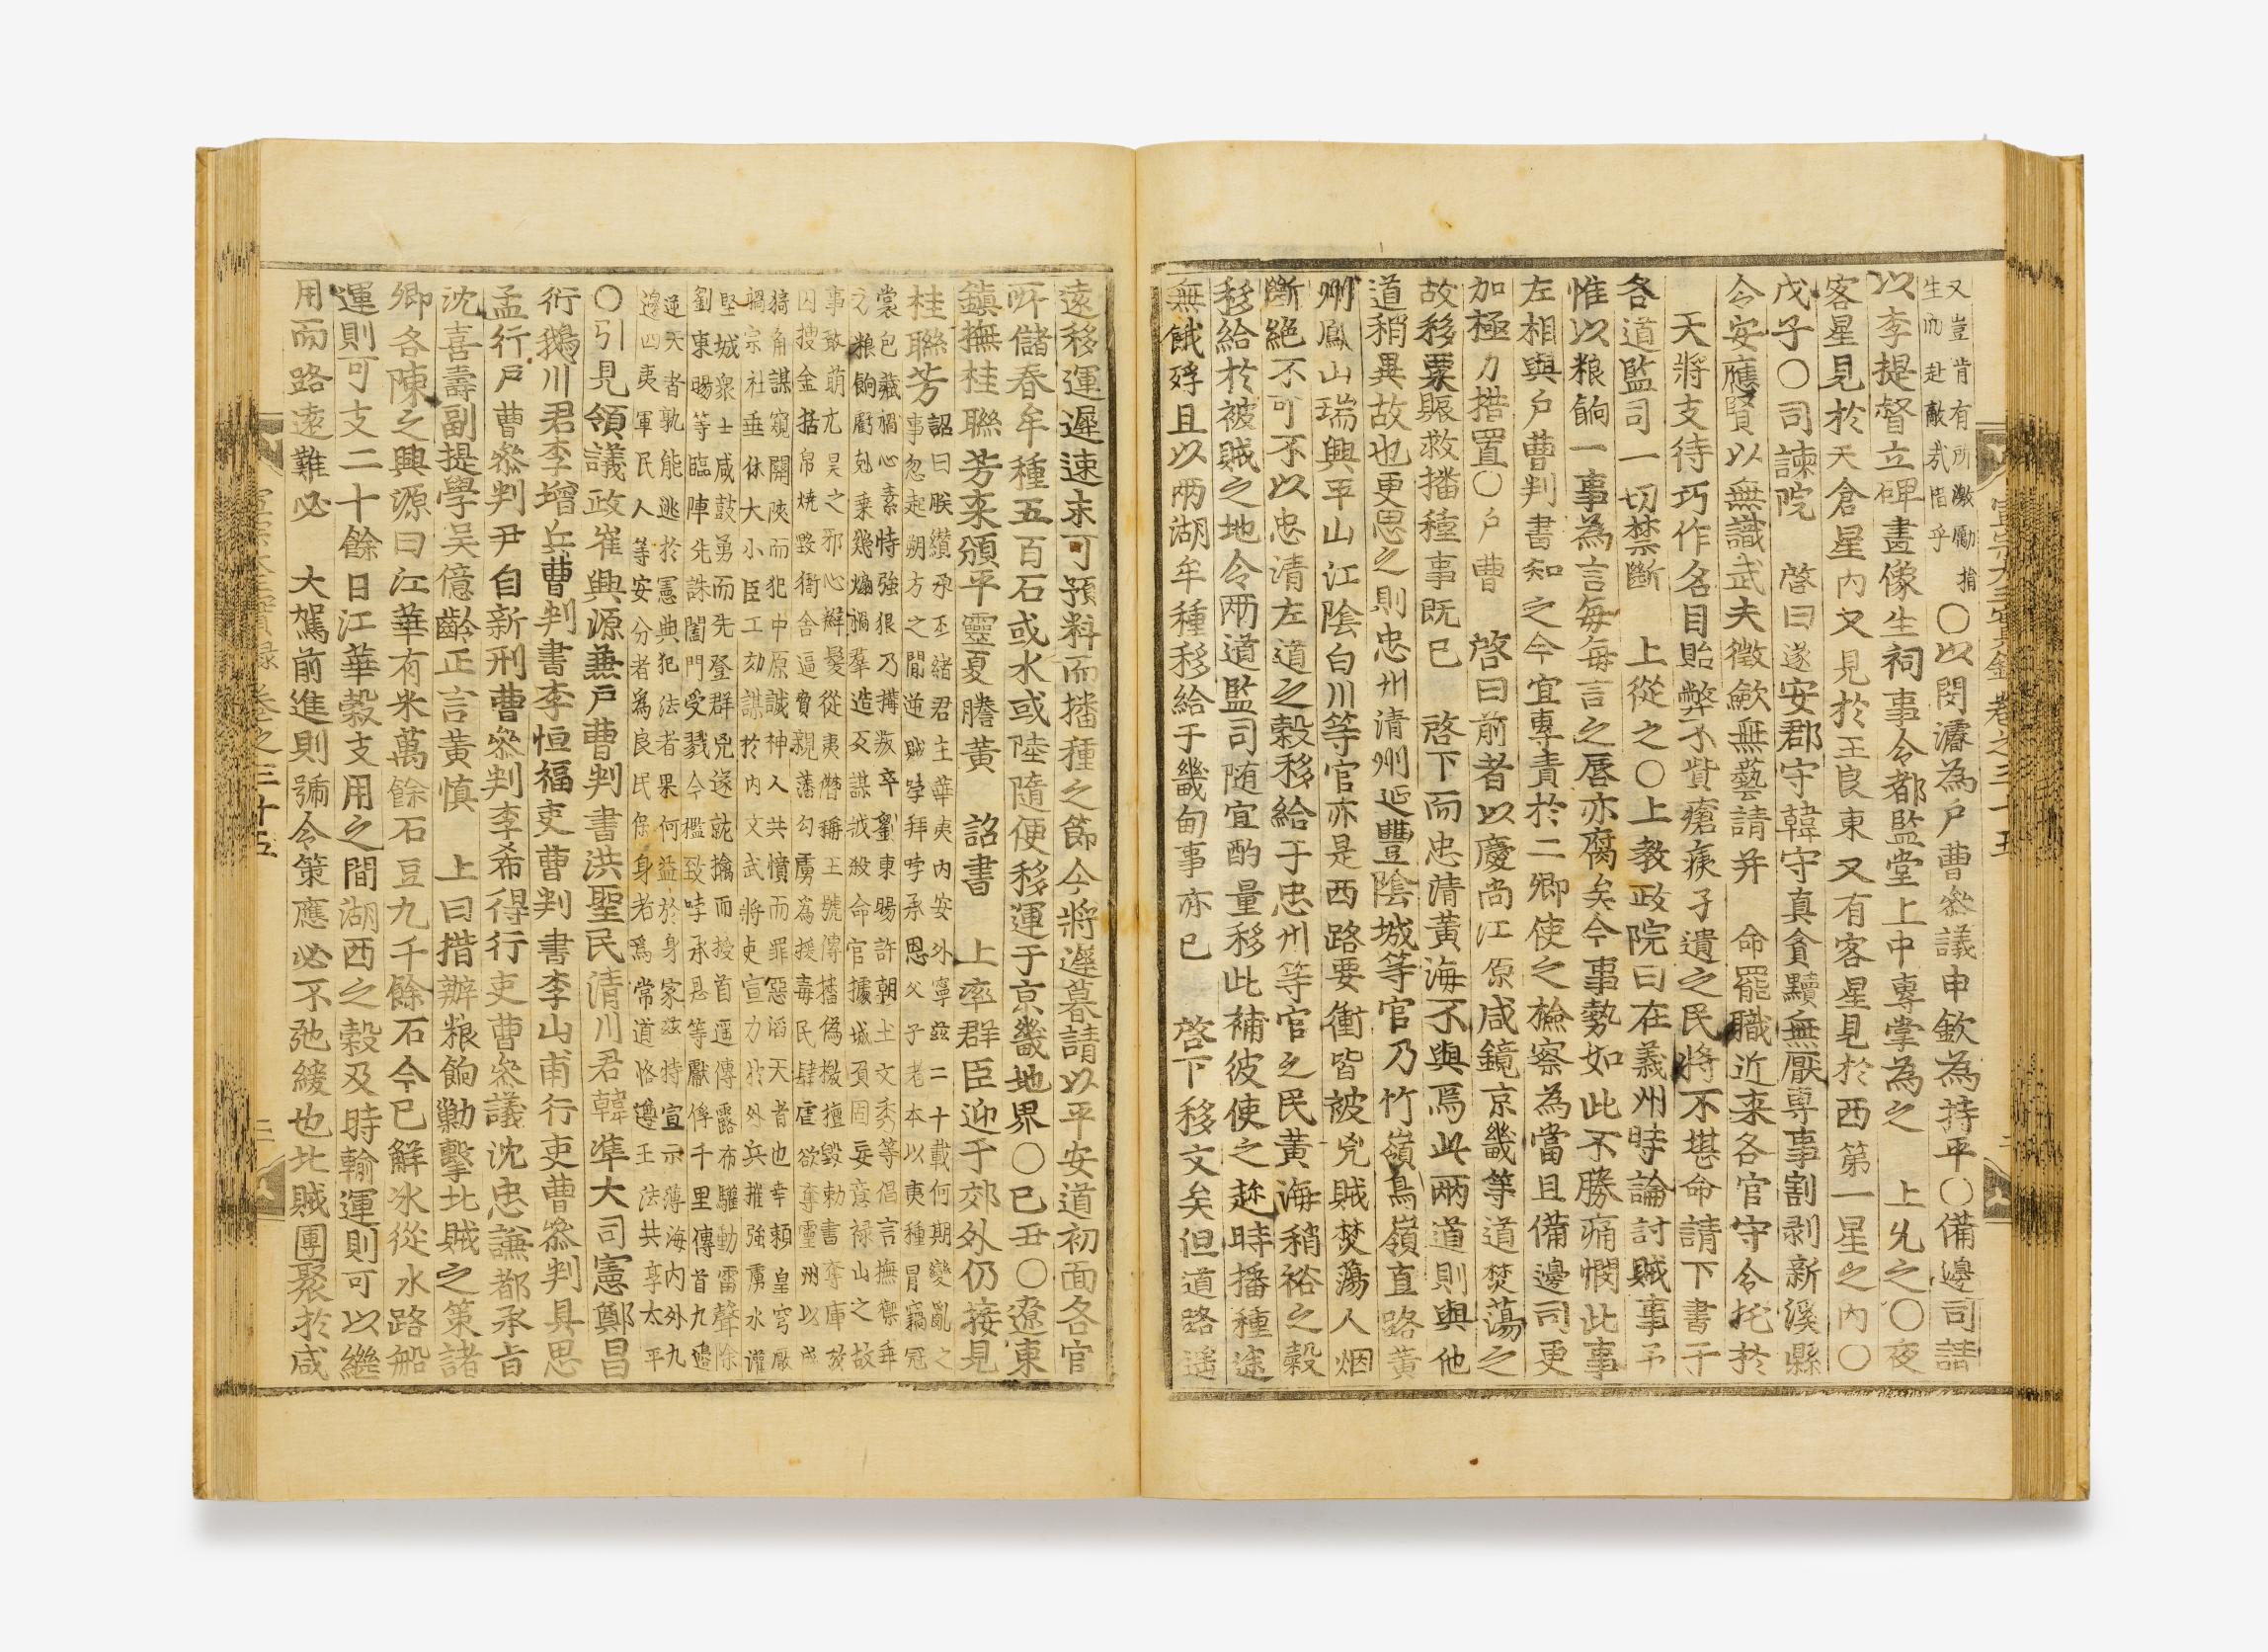 又豈肯有所激勵捐
生而赴敵哉惜乎
○以閔濬為戶曹參議申欽為持平○備邊司請
以李提督立碑畫像生祠事令都監堂上中專掌為之 上允之○夜
客星見於天倉星內又見於王良東又有客星見於西第一星之內○
戊子○司諫院 啓曰遂安郡守韓守真貪黷無厭專事割剥新溪縣
令安應賢以無識武夫徵斂無藝請并 命罷職近来各官守令托於
天將支待巧作名目貽弊不貲瘡痍孑遺之民將不堪命請下書于
各道監司一切禁斷 上從之○上教政院曰在義州時論討賊事予
惟以粮餉一事為言每每言之唇亦腐矣今事勢如此不勝痛憫此事
左相與户曹判書知之今宜專責於二卿使之檢察為當且備邊司更
加極力措置○户曹 啓曰前者以慶尚江原咸鏡京畿等道焚蕩之
故移粟賑救播種事既已 啓下而忠清黃海不與焉此兩道則與他
道稍異故也更思之則忠州清州延豐陰城等官乃竹嶺鳥嶺直路黃
州鳳山瑞興平山江陰白川等官亦是西路要衝皆被兇賊焚蕩人烟
斷絕不可不以忠清左道之穀移給于忠州等官之民黃海稍裕之穀
移給於被賊之地令兩道監司随宜酌量移此補彼使之趂時播種途
無餓殍且以兩湖牟種移給于畿甸事亦已 啓下移文矣但道路遥
宣宗大王實錄卷之三十五 二
遠移運遲速未可預料而播種之節今將遲暮請以平安道初面各官
所儲春牟種五百石或水或陸隨便移運于京畿地界○己丑○遼東
鎮撫桂聯芳来頒平靈夏謄黃 詔書 上率群臣迎于郊外仍接見
桂聯芳
詔曰朕纉承丕緒君主華夷內安外寧玆二十載何期變亂之
事忽起朔方之間逆賊哱拜哱承恩父子老本以夷種冒竊冠
裳包藏禍心素恃強狠乃搆叛卒劉東暘許朝土文秀等倡言撫禦乖
方粮餉虧剋乘幾煽禍羣造反謀戕殺命官據城須固妄意禄山之故
事敢萌亢昊之邪心辮髮從夷僭稱王號傳播偽檄擅毀勅書奪庫放
囚搜金括帛燒毀衙舍逼貟親藩勾虜為援毒民肆虐欲奪靈州以成
猗角謀窺關陝而犯中原誠神人共憤而罪惡滔天者也幸頼皇穹厭
禍宗社垂休大小臣工効謀於內文武將吏宣力於外兵摧強虜水灌
堅城衆士咸鼓勇而先登群兇遂就擒而授首遥傳露布驩動雷聲除
劉東暘等臨陣先誅闔門受戮今檻致哱承恩等獻俘千里傳首九邊
逆天者孰能逃於憲典犯法者果何益於身家玆特宣示薄海内外九
邊四夷軍民人等安分者為良民保身者爲常道恪遵王法共享太平
○引見領議政崔興源兼戶曹判書洪聖民清川君韓準大司憲鄭昌
衍鵝川君李增兵曹判書李恒福吏曹判書李山甫行吏曹參判具思
孟行戶曹參判尹自新刑曹參判李希得行吏曹參議沈忠謙都承旨
沈喜壽副提學吳億齡正言黃慎 上曰措辦粮餉勦擊北賊之策諸
卿各陳之興源曰江華有米萬餘石豆九千餘石今已觧冰從水路船
運則可支二十餘日江華穀支用之間湖西之穀及時輸運則可以繼
用而路遠難必 大駕前進則號令策應必不弛緩也北賊團聚於咸
宣宗大王實錄卷之三十五 二